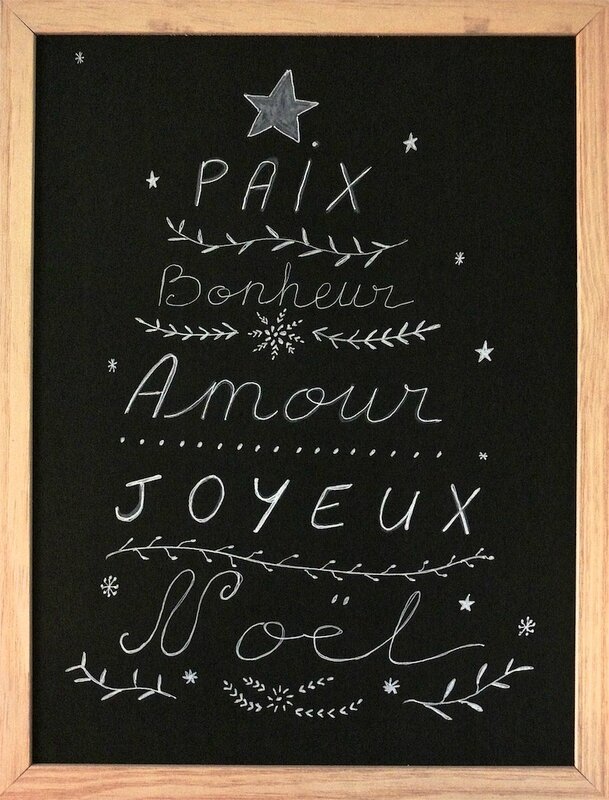 PAIX
Bonheur
Amour
JOYEUX
Noël